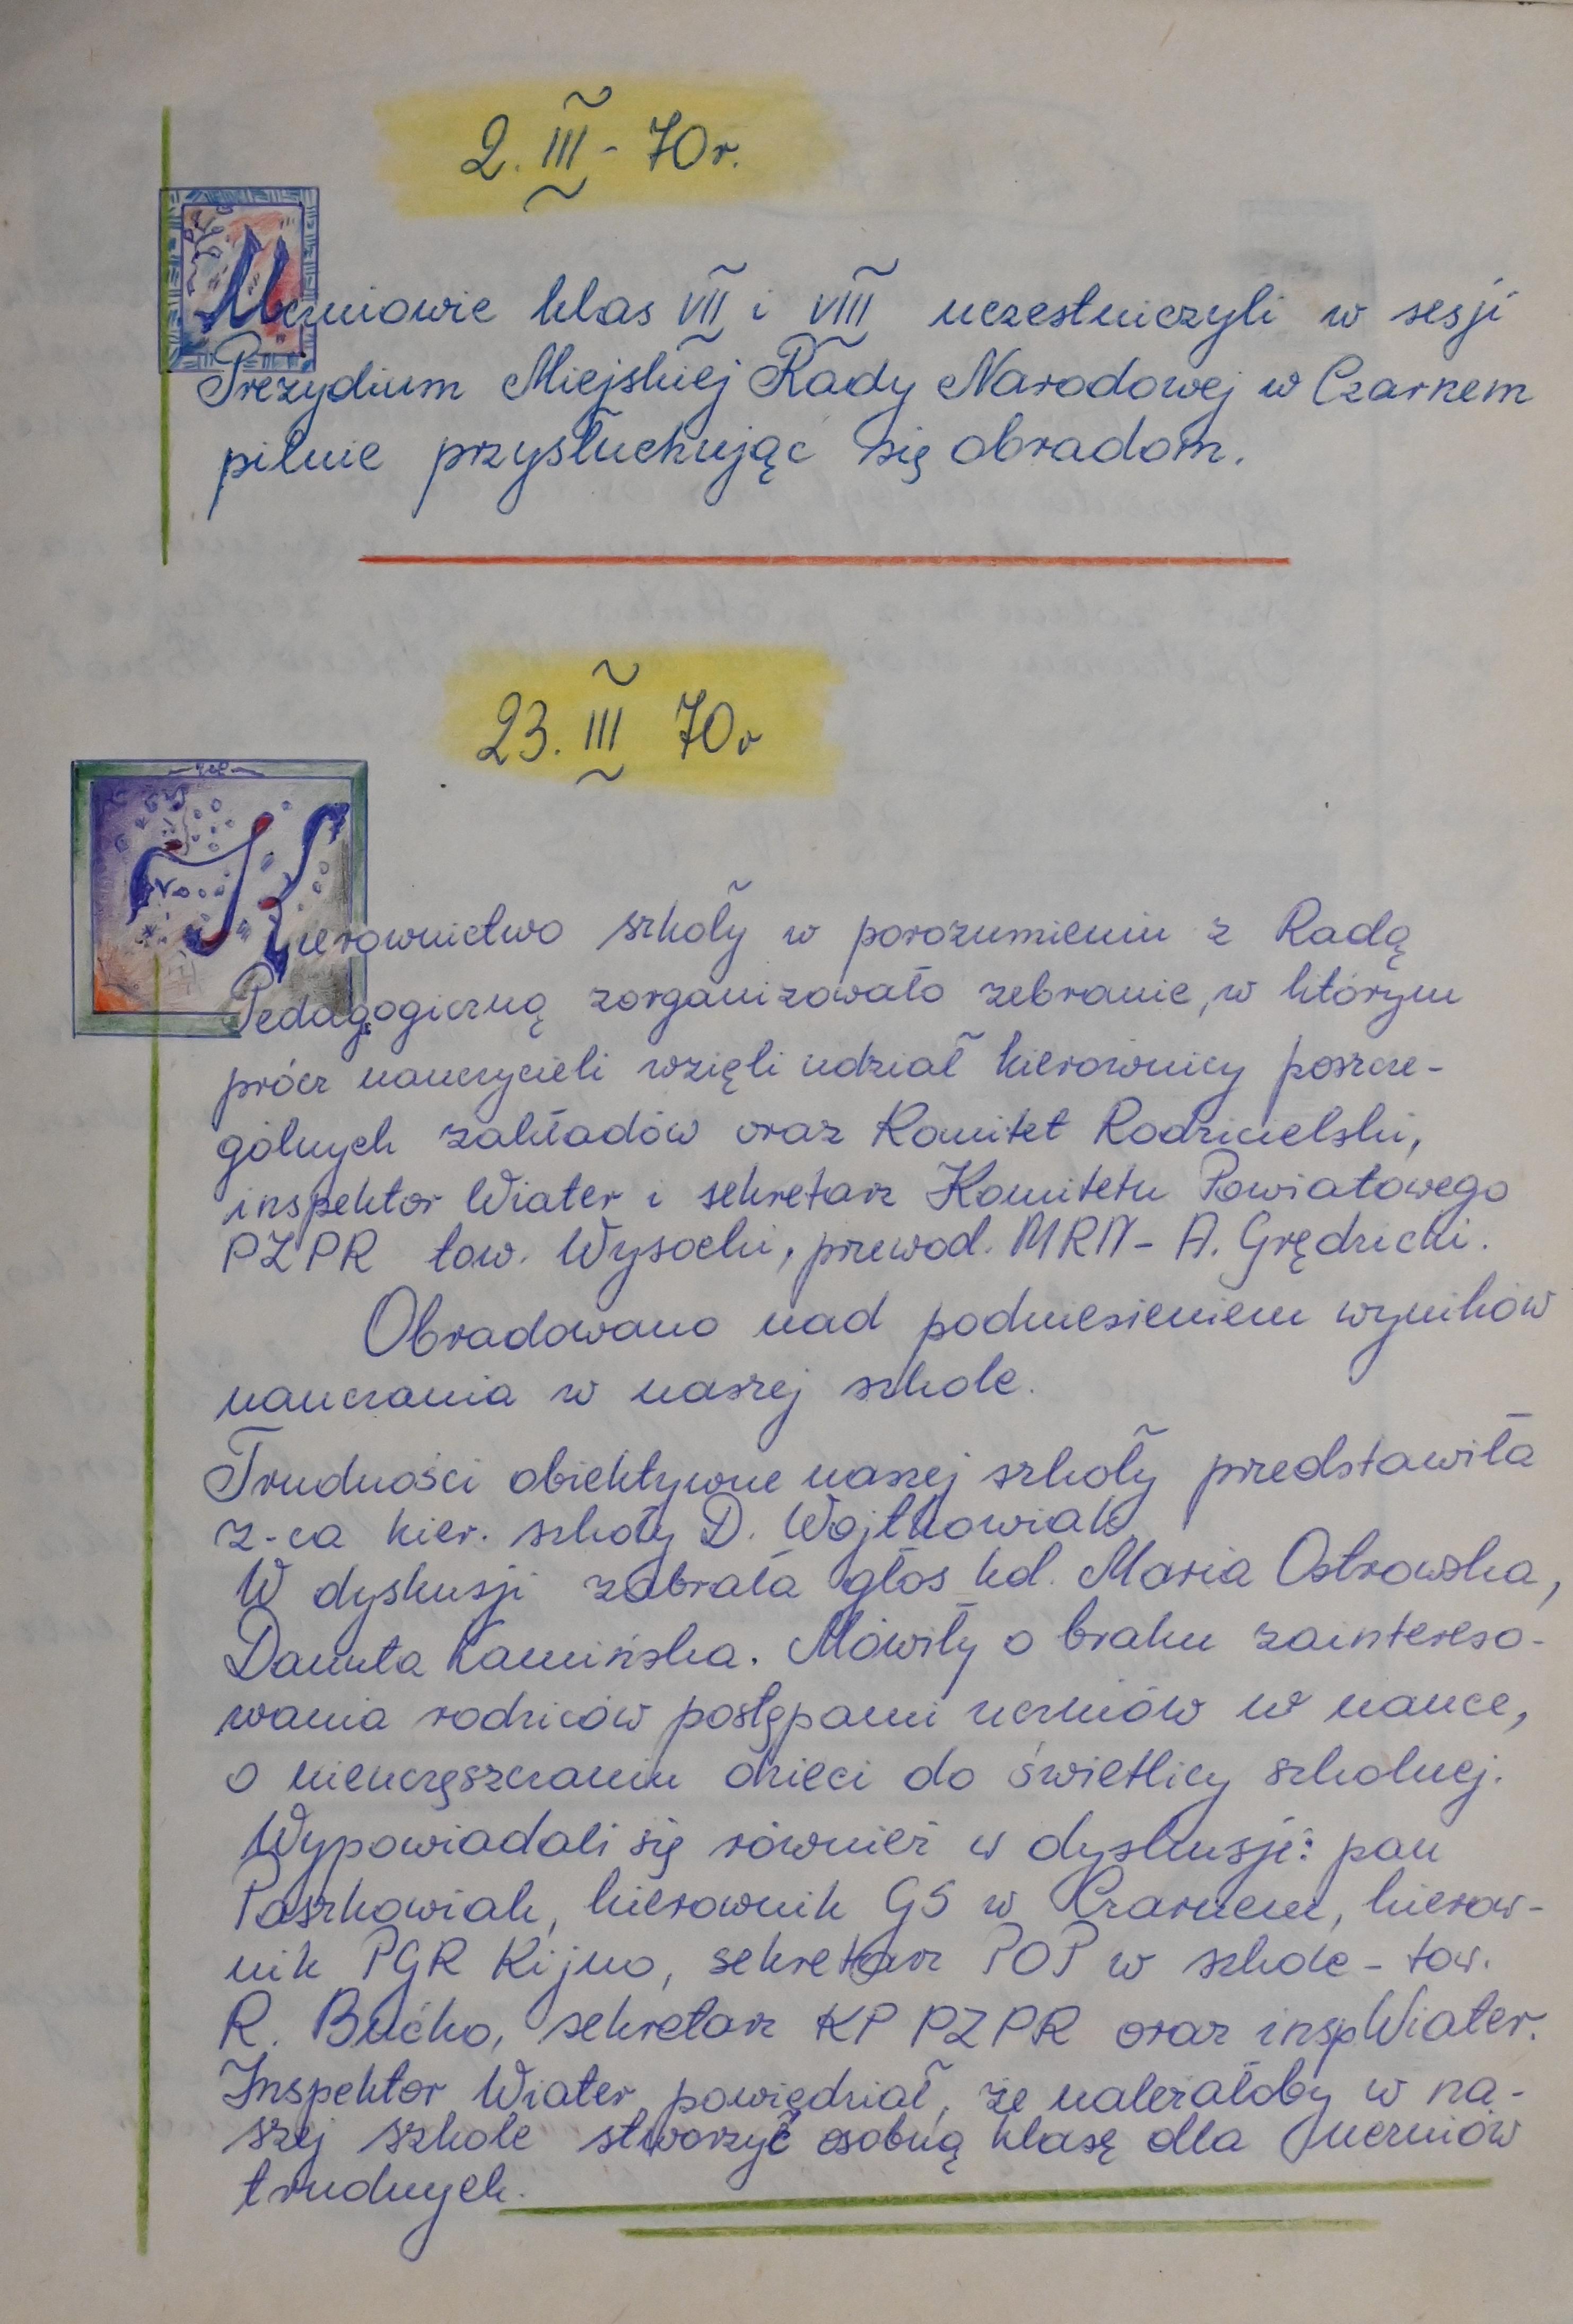 2. III - 70 r.
Uczniowie klas VII i VIII uczestniczyli w sesji
Prezydium Miejskiej Rady Narodowej w Czarnem
pilnie przysłuchując się obradom.
23. III 70 r
Kierownictwo szkoły w porozumieniu z Radą
Pedagogiczną zorganizowało zebranie, w którym
prócz nauczycieli wzięli udział kierownicy poszcze-
gólnych zakładów oraz Komitet Rodzicielski,
inspektor Wiater i sekretarz Komitetu Powiatowego
PZPR tow. Wysocki, przewod. MRN - A. Grędzicki.
Obradowano nad podniesieniem wyników
nauczania w naszej szkole.
Trudności obiektywne naszej szkoły przedstawiła
z-ca kier. szkoły D. Wojtkowiak
W dyskusji zabrała głos kol. Maria Ostrowska,
Danuta Kamińska. Mówiły o braku zaintereso-
wania rodziców postępami uczniów w nauce,
o nieuczęszczaniu dzieci do świetlicy szkolnej.
Wypowiadali się również w dyskusji: pan
Paszkowiak, kierownik GS w Czarnem, kierow-
nik PGR Kijno, sekretarz POP w szkole - tow.
R. Bućko, sekretarz KP PZPR oraz insp Wiater.
Inspektor Wiater powiedział, że należałoby w na-
szej szkole stworzyć osobną klasę dla uczniów
trudnych.